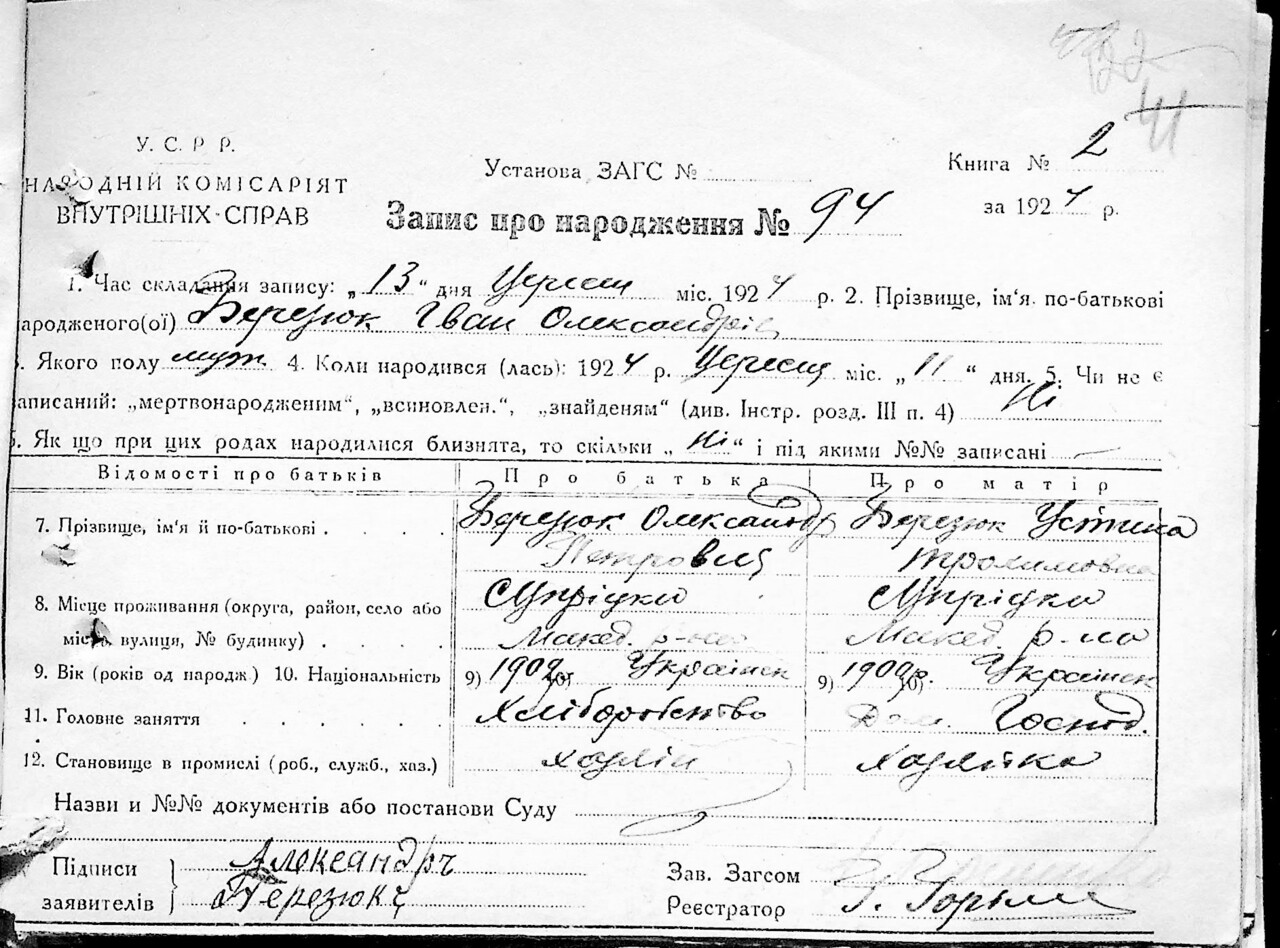 41
У. С. Р Р.
НАРОДНІЙ КОМІСАРІЯТ
ВНУТРІШНІХ-СПРАВ
Установа ЗАГС №
Книга № 2
за 1924 р.
Запис про народження № 94
1. Час складання запису: „ 13 “ дня міс. 1924 р. 2. Прізвище, ім'я по-батькові
ародженого(ої) Березюк Іван Олександрів
. Якого полу муж 4. Коли народився (лась): 1924 р. міс. „ 11 “ дня. 5. Чи не є
записаний: „мертвонародженим“, „всиновлен.“, „знайденям“ (див. Інстр. розд. III п. 4) Ні
. Як що при цих родах народилися близнята, то скільки „ Ні “ і під якими №№ записані —
Відомості про батьків Про батька Про матір
7. Прізвище, ім'я й по-батькові . . . . Березюк Олександр Березюк Устина
Петрович
8. Місце проживання (округа, район, село або
місто, вулиця, № будинку) . . . . Макед. р-ну Макед. р-ну
9. Вік (років од народж) 10. Національність 9) 1902 Українец 9) р. Українк
11. Головне заняття . . . . . . Хліборобство Дом. Господ.
12. Становище в промислі (роб., служб., хаз.) хазяїн хазяйка
Назви и №№ документів або постанови Суду
Підписи
заявителів
Александръ
Березюкъ
Зав. Загсом
Реєстратор